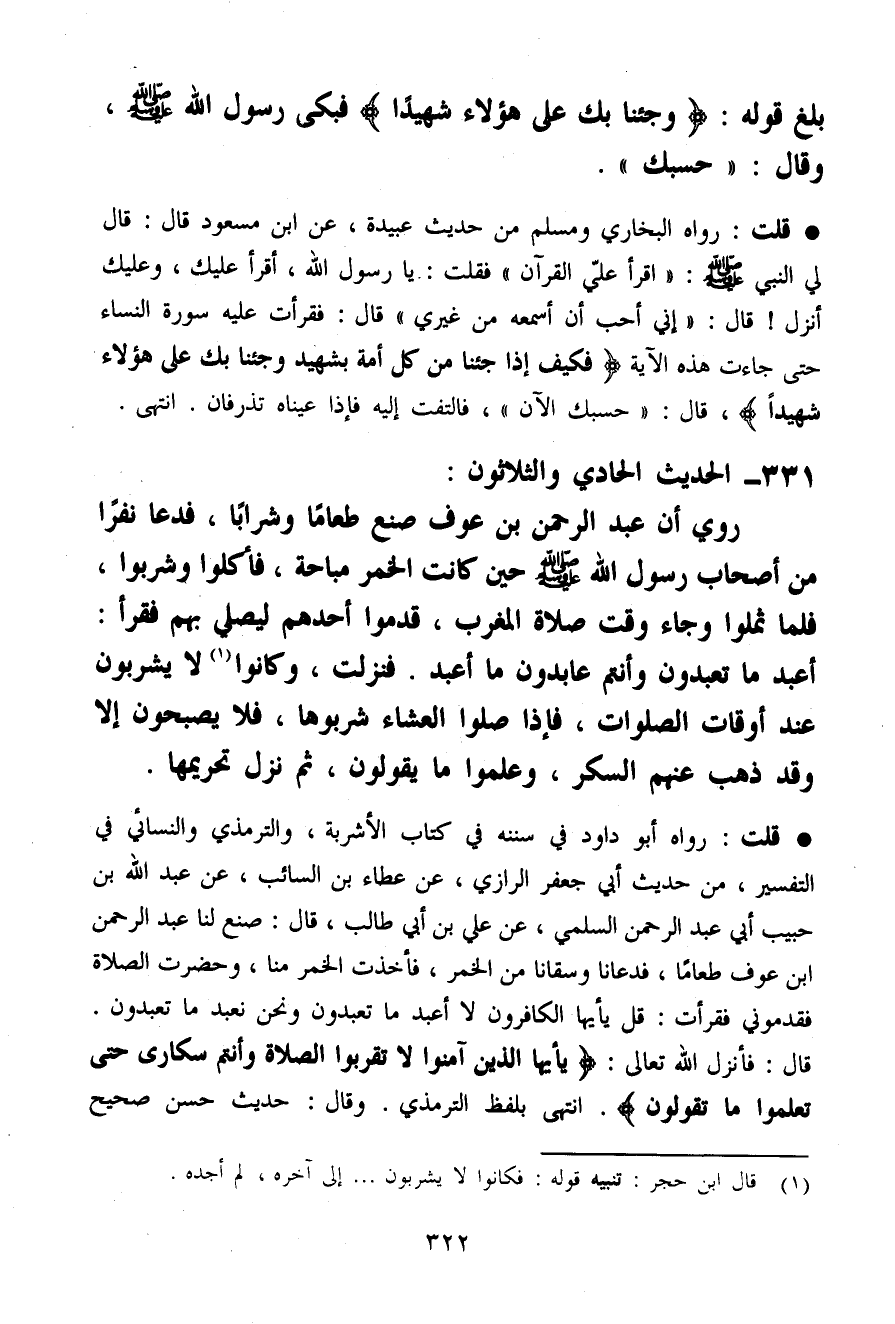 بلغ قوله : ﴿ وجئنا بك على هؤلاء شهيدًا ﴾ فبكى رسول الله ﷺ ،
وقال : « حسبك » .
● قلت : رواه البخاري ومسلم من حديث عبيدة ، عن ابن مسعود قال : قال
لي النبي ﷺ : « اقرأ عليّ القرآن » فقلت : يا رسول الله ، أقرأ عليك ، وعليك
أنزل ! قال : « إني أحب أن أسمعه من غيري » قال : فقرأت عليه سورة النساء
حتى جاءت هذه الآية ﴿ فكيف إذا جئنا من كل أمة بشهيد وجئنا بك على هؤلاء
شهيداً ﴾ ، قال : « حسبك الآن » ، فالتفت إليه فإذا عيناه تذرفان . انتهى .
٣٣١ـ الحديث الحادي والثلاثون :
روي أن عبد الرحمن بن عوف صنع طعامًا وشرابًا ، فدعا نفرًا
من أصحاب رسول الله ﷺ حين كانت الخمر مباحة ، فأكلوا وشربوا ،
فلما ثملوا وجاء وقت صلاة المغرب ، قدموا أحدهم ليصلي بهم فقرأ :
أعبد ما تعبدون وأنتم عابدون ما أعبد . فنزلت ، وكانوا(١) لا يشربون
عند أوقات الصلوات ، فإذا صلوا العشاء شربوها ، فلا يصبحون إلا
وقد ذهب عنهم السكر ، وعلموا ما يقولون ، ثم نزل تحريمها .
● قلت : رواه أبو داود في سننه في كتاب الأشربة ، والترمذي والنسائي في
التفسير ، من حديث أبي جعفر الرازي ، عن عطاء بن السائب ، عن عبد الله بن
حبيب أبي عبد الرحمن السلمي ، عن علي بن أبي طالب ، قال : صنع لنا عبد الرحمن
ابن عوف طعامًا ، فدعانا وسقانا من الخمر ، فأخذت الخمر منا ، وحضرت الصلاة
فقدموني فقرأت : قل يأيها الكافرون لا أعبد ما تعبدون ونحن نعبد ما تعبدون .
قال : فأنزل الله تعالى : ﴿ يأيها الذين آمنوا لا تقربوا الصلاة وأنتم سكارى حتى
تعلموا ما تقولون ﴾ . انتهى بلفظ الترمذي . وقال : حديث حسن صحيح
(١) قال ابن حجر : تنبيه قوله : فكانوا لا يشربون ... إلى آخره ، لم أجده .
٣٢٢